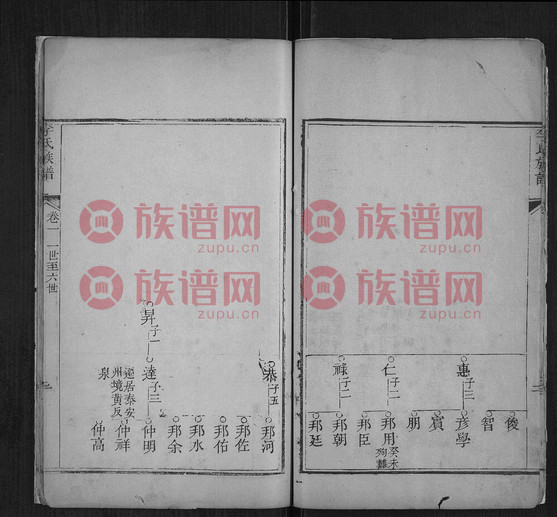 李氏族谱
俊
智
惠子三
彦學
賓
朋
仁子二
邦用癸未殉難
邦臣
禄子二
邦朝
邦廷
李氏族譜
卷一 一世至六世
恭子五
邦河
邦佐
邦佑
邦水
邦余
昇子一
達子三
遷居泰安
州境黄
泉
仲明
仲祥
仲高
族谱网
zupu.cn
族谱网
zupu.cn
族谱网
zupu.cn
族谱网
zupu.cn